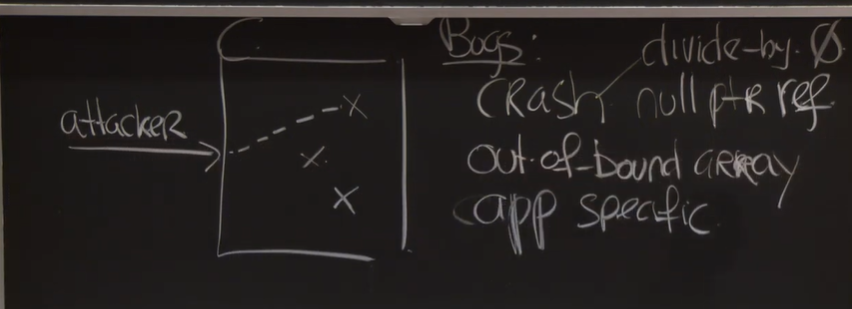 C
attacker
Bogs:
divide-by. Ø
CRash null ptR ref.
out-of-bound aRRay
app specific